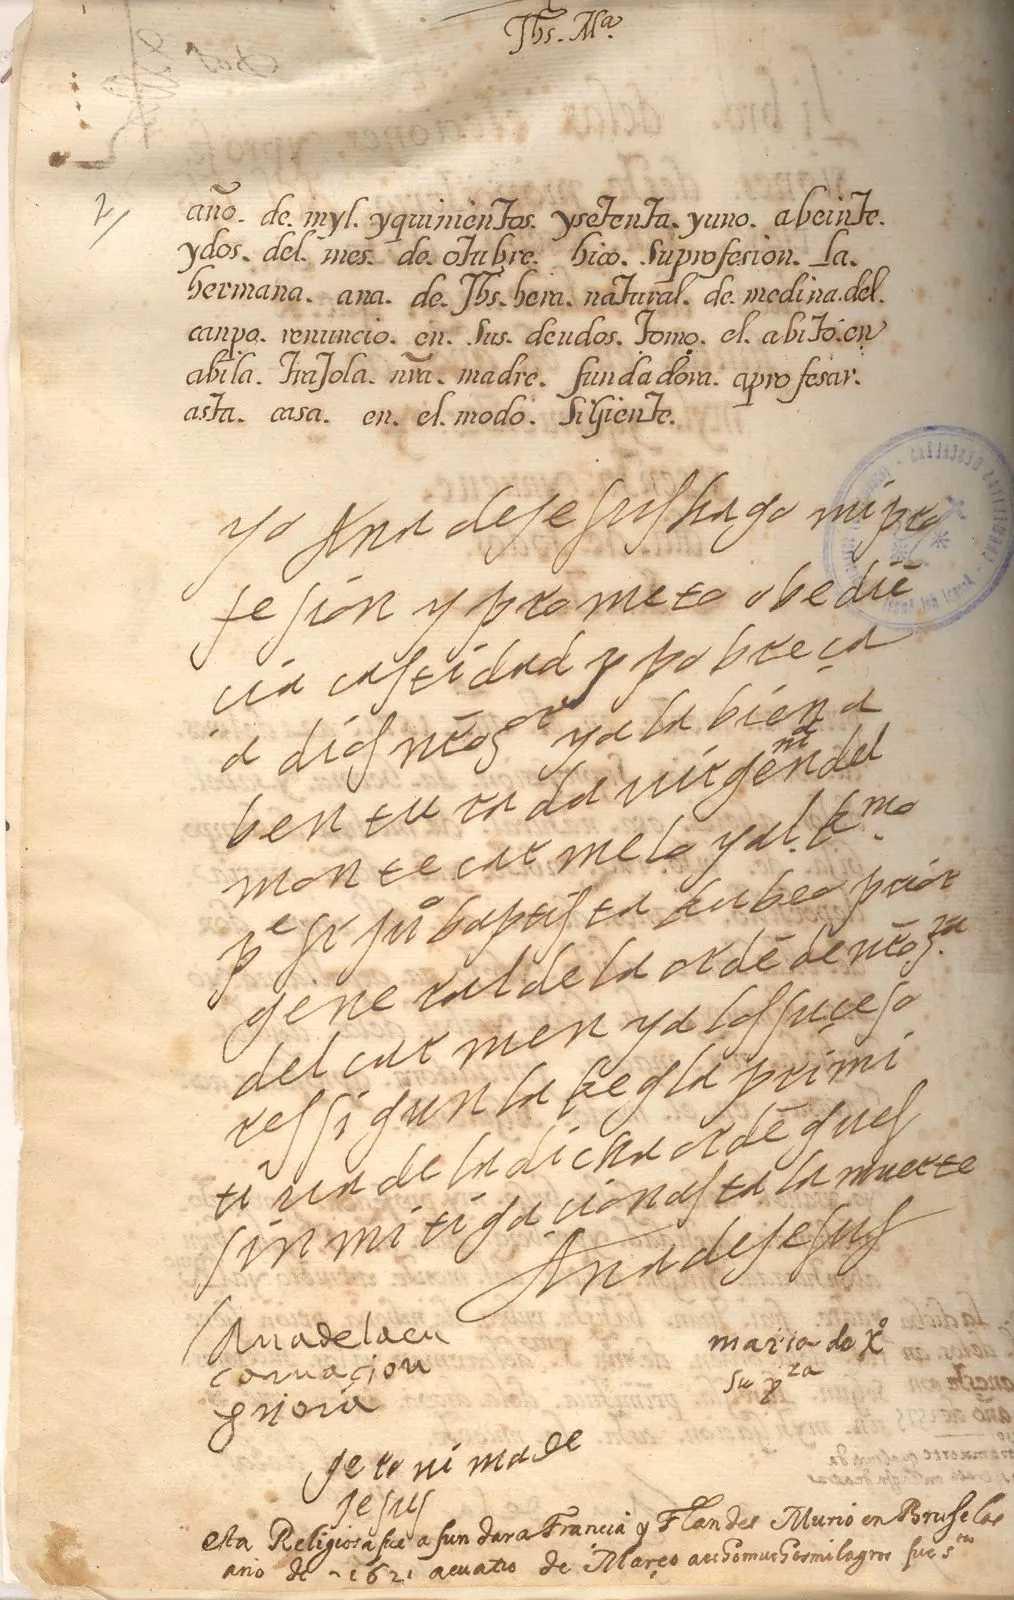 Jhs. Mª
2/
año. de. myl. yquinientos. ysetenta. yuno. abeinte.
ydos. del. mes. de. otubre. hiço. Suprofesion. La.
hermana. ana. de. Jhs. natural. de. medina. del.
canpo. renuncio. en. Sus. deudos. tomo. el. abito. en
abila. traJola. nra. madre. fundadora. aprofesar.
asta. casa. en. el. modo. Sigiente.
yo Ana de jesus hago mi pro
fesion y prometo obediē
cia castidad y pobreça
a dios nro sor y a la biena
benturada virgen mª del
monte carmelo y al Rmo
pe fr juº baptista Rubeo prior
general de la ordē de nra sra
del carmen y a los suçeso
res sigun la Regla primi
tiva de la dicha ordē ques
sin mitigacion asta la muerte
Ana de jesus
Ana de la en
carnaçion
priora
maria de Xº
su prª
jeronima de
jesus
esta Religiosa fue a fundar a Francia y Flandes Murio en Bruselas
año de 1621 acuatro de Março a echo muchos milagros fue sta
CARMELITAS DESCALZAS